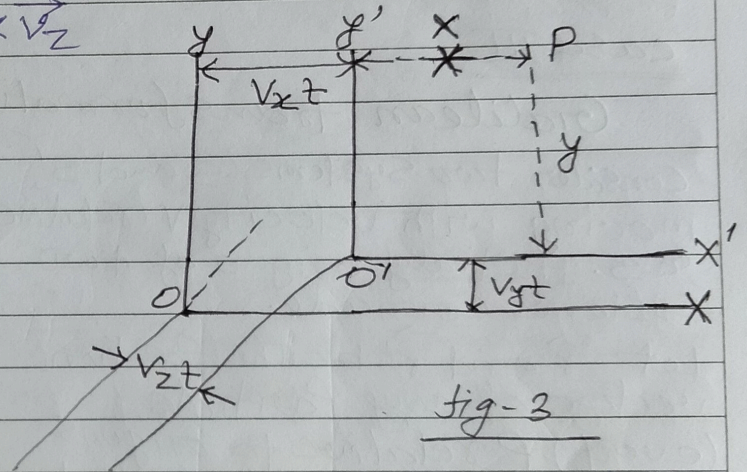 × V⃗z
y y' X P
Vxt
y
X'
O'
Vyt
O
X
Vzt
fig-3